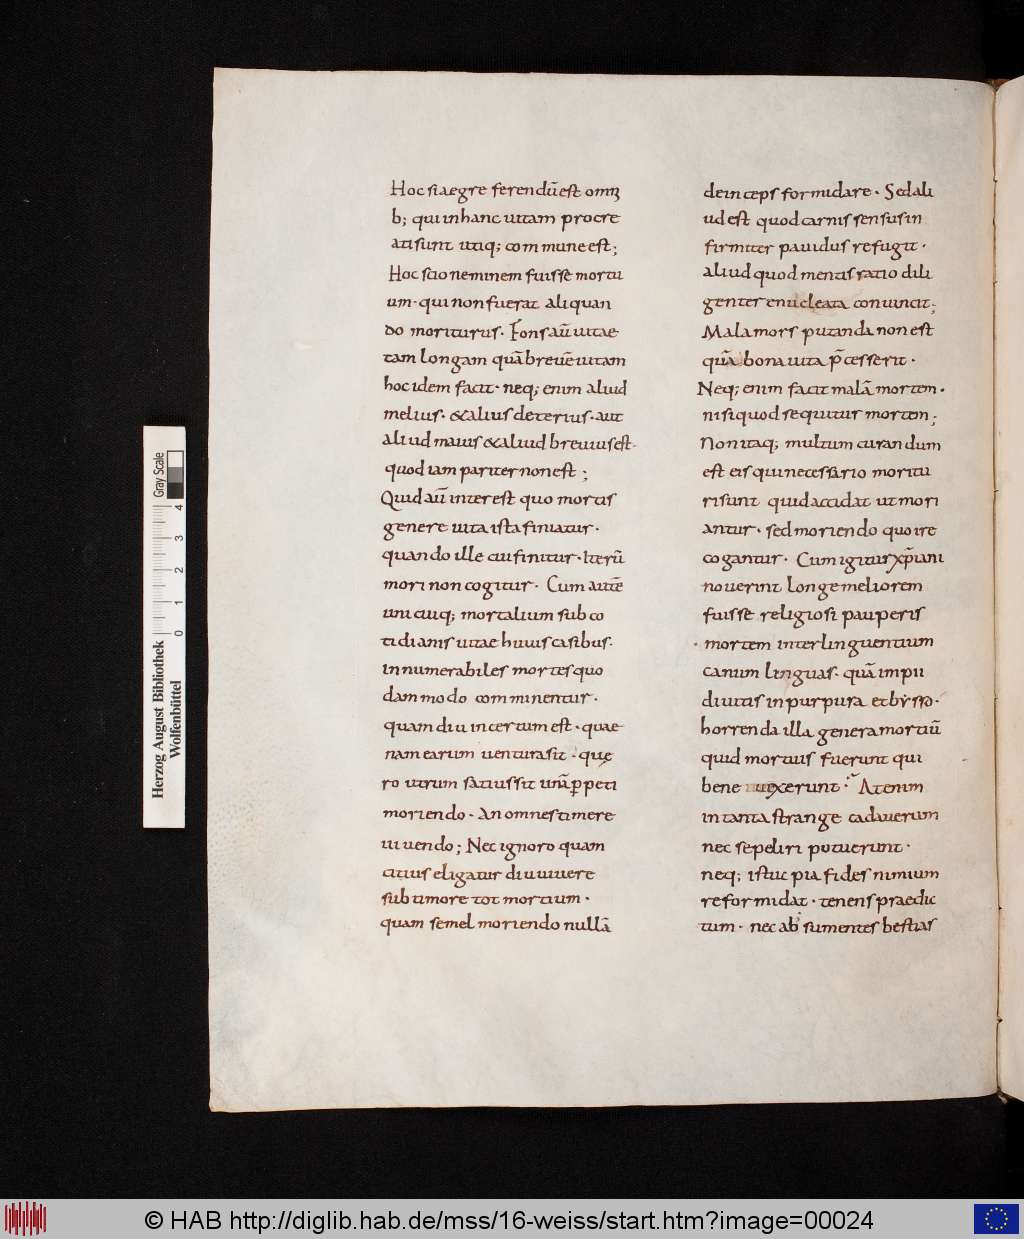 Hoc si aegre ferendū est omnꝫ
b; qui in hanc uitam procre
ati sunt utiq; commune est;
Hoc scio neminem fuisse mortu
um · qui non fuerat aliquan
do moriturus · Finis aū uitae
tam longam quā breuē uitam
hoc idem facit · neq; enim aliud
melius · & aliud deterius · aut
aliud maius & aliud breuius est ·
quod iam pariter non est ;
Quid aū interest quo mortis
genere uita ista finiatur ·
quando ille cui finitur · Iterū
mori non cogitur · Cum autē
uni cuiq; mortalium sub co
tidianis uitae huius casibus ·
innumerabiles mortes quo
dam modo comminentur ·
quam diu incertum est · quae
nam earum uentura sit · quę
ro utrum satius sit unā ꝑpeti
moriendo · An omnes timere
uiuendo ; Nec ignoro quam
citius eligatur diu uiuere
sub timore tot mortium ·
quam semel moriendo nullā
deinceps formidare · Sed ali
ud est quod carnis sensus in
firmiter pauidus refugit ·
aliud quod mentis ratio dili
genter enucleata conuincit ;
Mala mors putanda non est
quā bona uita p̄cesserit ·
Neq; enim facit malā mortem ·
nisi quod sequitur mortem ;
Non itaq; multum curandum
est eis qui necessario moritu
ri sunt quid accidat ut mori
antur · sed moriendo quo ire
cogantur · Cum igitur xp̄iani
nouerint longe meliorem
fuisse religiosi pauperis
mortem inter linguentium
canum linguas · quā impii
diuitis in purpura et bẏsso ·
horrenda illa genera mortiū
quid mortuis fuerunt qui
bene uixerunt · At enim
in tanta strange cadauerum
nec sepeliri potuerunt ·
neq; istuc pia fides nimium
reformidat · tenens praedic
tum · nec absumentes bestias
Herzog August Bibliothek
Wolfenbüttel
0 1 2 3 4
Gray Scale
© HAB http://diglib.hab.de/mss/16-weiss/start.htm?image=00024